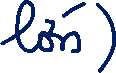 lớn)